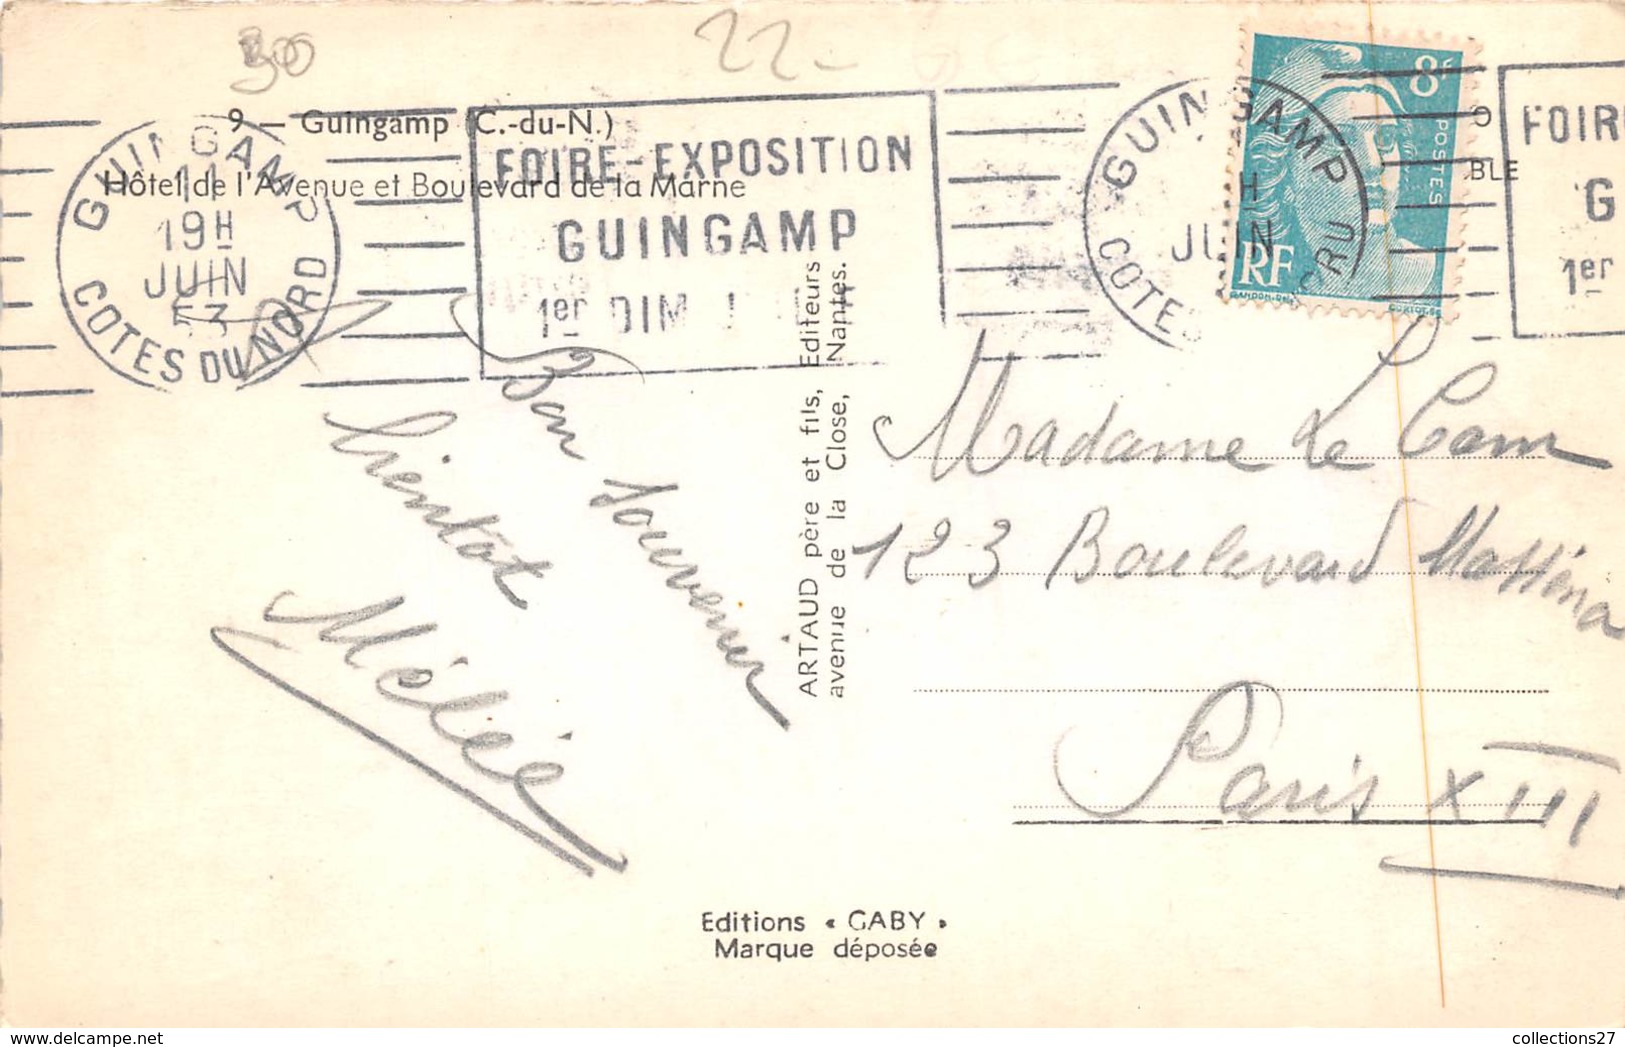 300
22-
9 — Guingamp (C.-du-N.)
Hôtel de l'Avenue et Boulevard de la Marne
GUINGAMP
11
19H
JUIN
53
COTES DU NORD
FOIRE-EXPOSITION
GUINGAMP
1er DIM J
GUINGAMP
H
JUIN
COTES
8F
POSTES
RF
GANDON
O
BLE
FOIR
G
1er
Bon souvenir
bientot
Mélée
ARTAUD père et fils, Editeurs
avenue de la Close, Nantes.
Madame Le Cam
123 Boulevard Masséna
Paris XIII
Editions « GABY »
Marque déposée
collections27